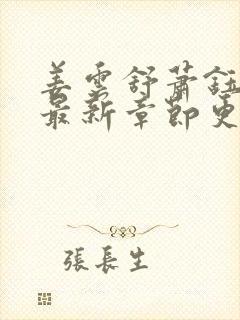 姜雲舒蕭鈺
最新章節更
張長生